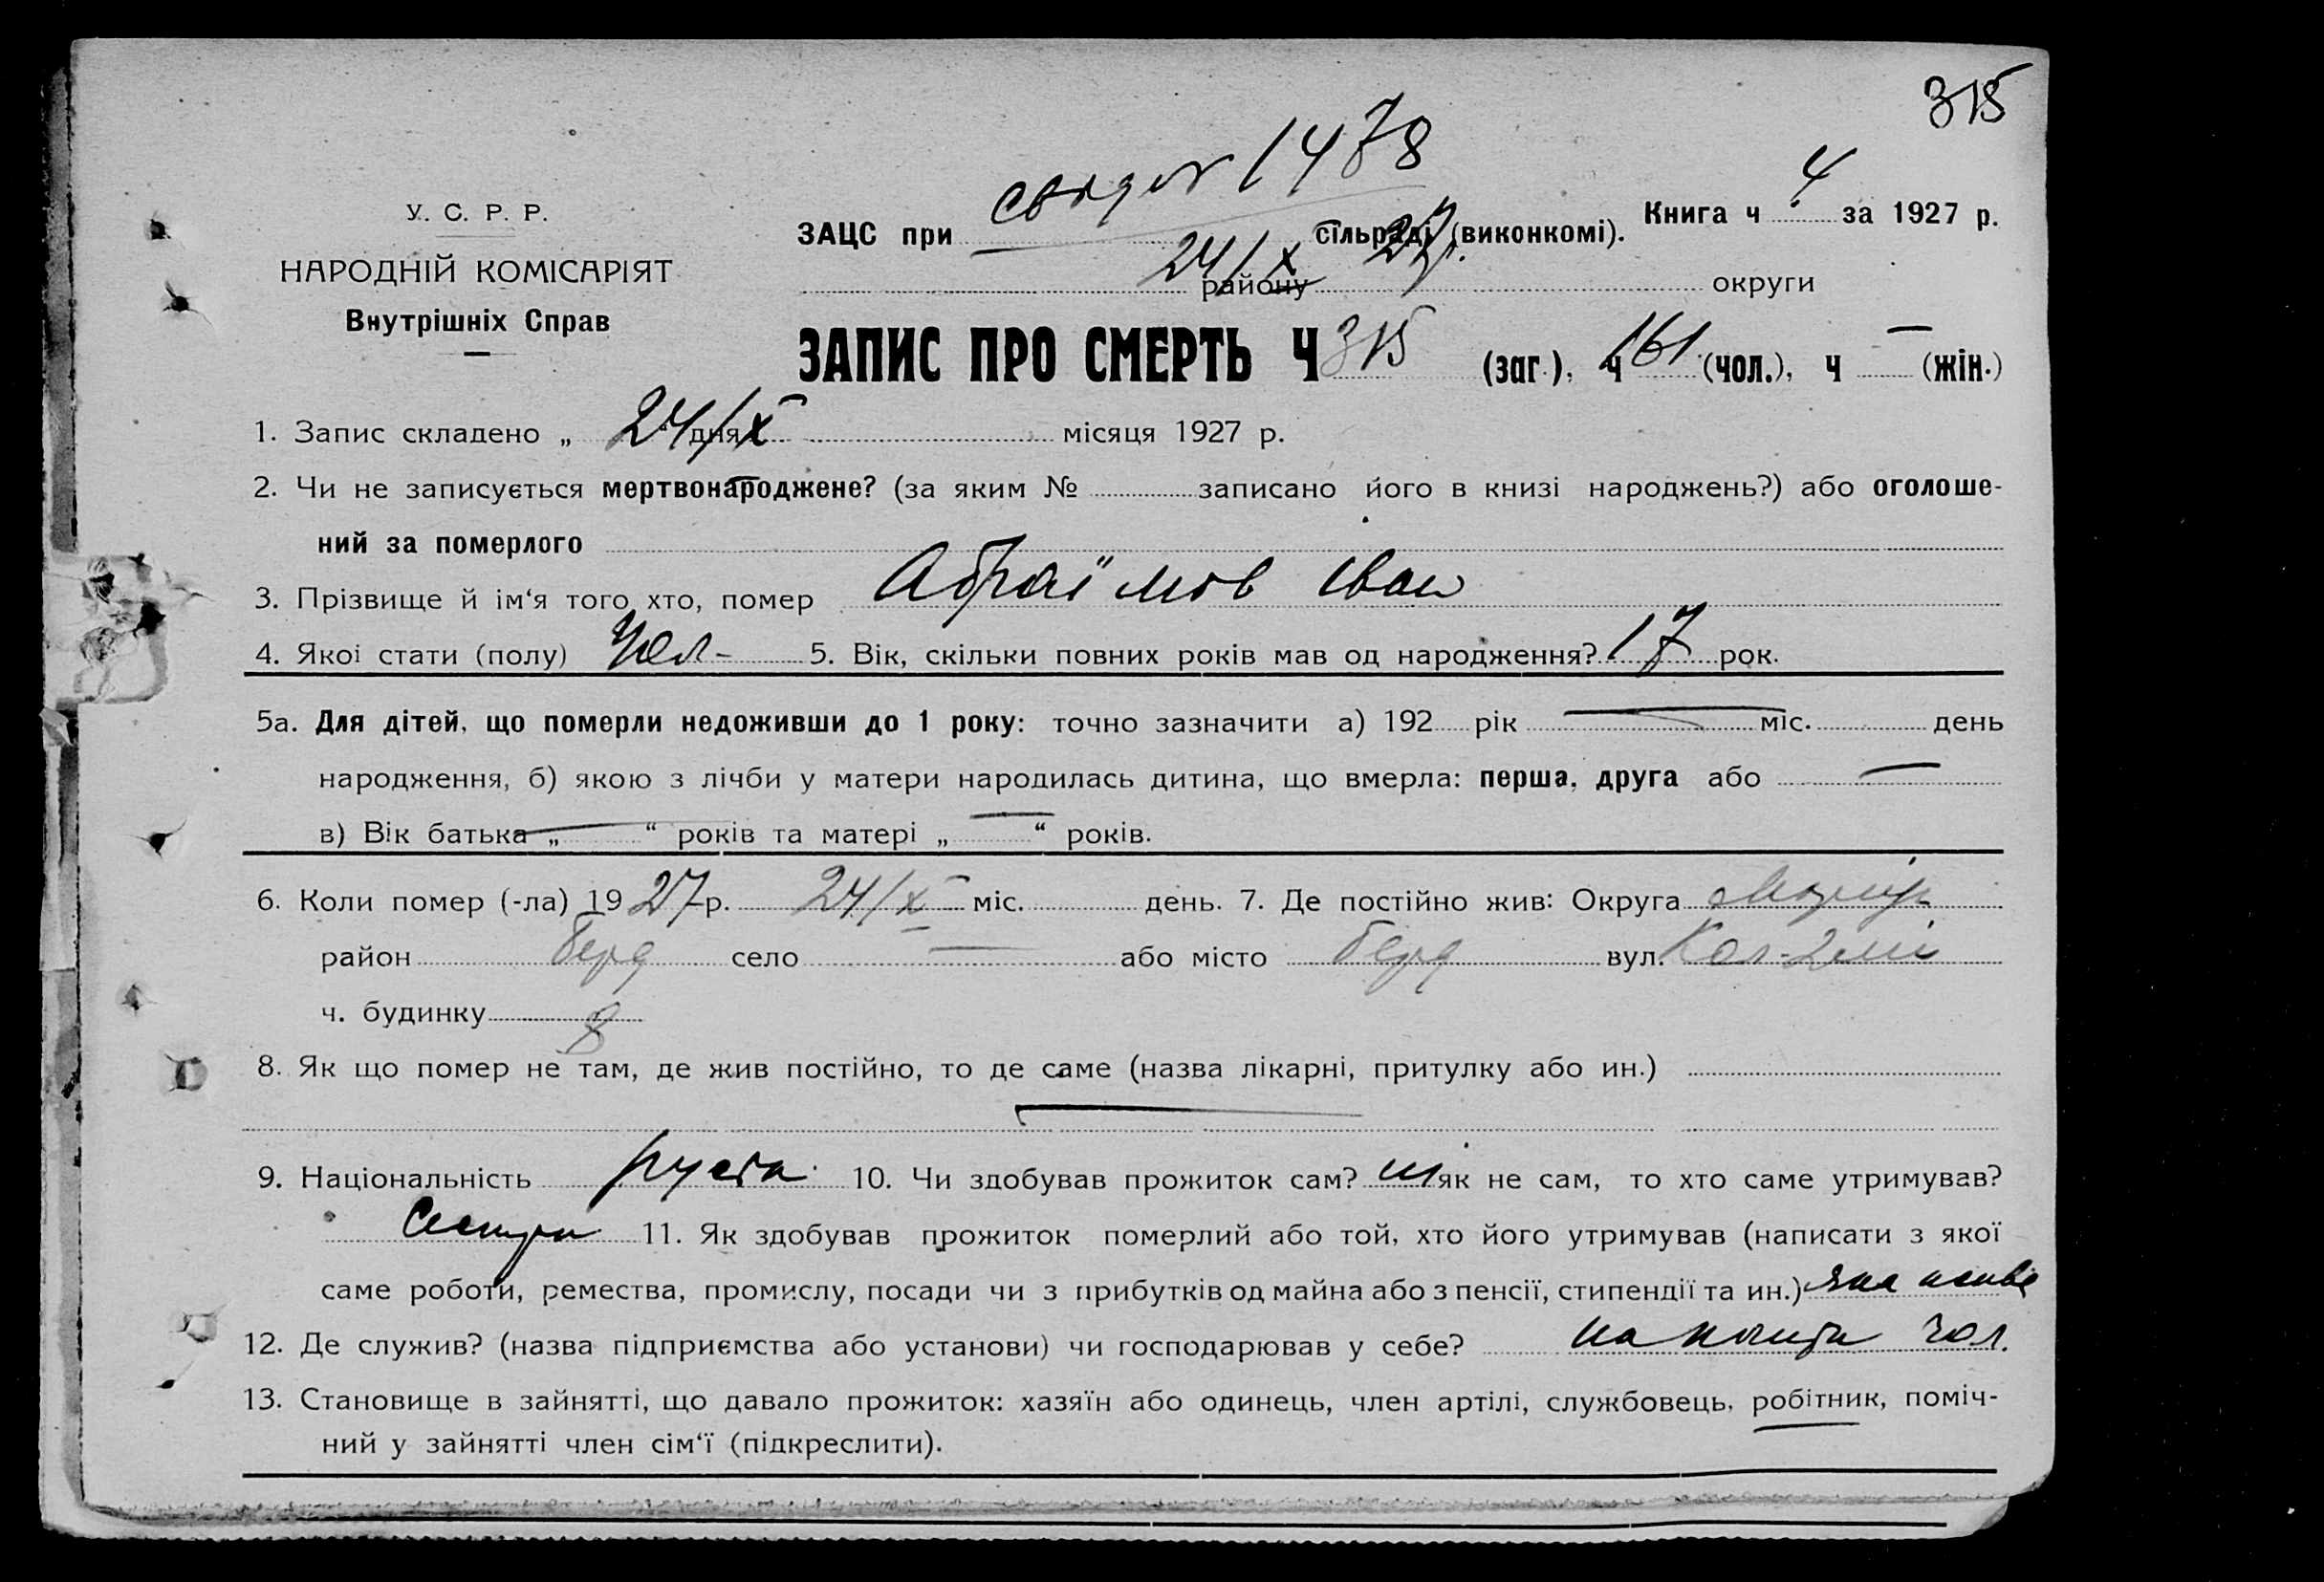 315
свідоц 1478
У. С. Р. Р.
НАРОДНІЙ КОМІСАРІЯТ
Внутрішніх Справ
ЗАЦС при сільраді (виконкомі). Книга ч 4 за 1927 р.
24/X 27 р. району округи
ЗАПИС ПРО СМЕРТЬ Ч 315 (заг.), ч 161 (чол.), ч — (жін.)
1. Запис складено „ 24/X “ дня місяця 1927 р.
2. Чи не записується мертвонароджене? (за яким № записано його в книзі народжень?) або оголоше-
ний за померлого
3. Прізвище й ім‘я того хто, помер Абраїмов Іван
4. Якої стати (полу) Чол- 5. Вік, скільки повних років мав од народження? 17 рок.
5а. Для дітей, що померли недоживши до 1 року: точно зазначити а) 192 рік — міс. день
народження, б) якою з лічби у матери народилась дитина, що вмерла: перша, друга або —
в) Вік батька „ — “ років та матері „ — “ років.
6. Коли помер (-ла) 1927 р. 24/X міс. день. 7. Де постійно жив: Округа Маріуп
район Берд село — або місто Берд вул.
ч. будинку 8
8. Як що помер не там, де жив постійно, то де саме (назва лікарні, притулку або ин.)
—
9. Національність 10. Чи здобував прожиток сам? ні як не сам, то хто саме утримував?
Сестра 11. Як здобував прожиток померлий або той, хто його утримував (написати з якої
саме роботи, ремества, промислу, посади чи з прибутків од майна або з пенсії, стипендії та ин.) яка
12. Де служив? (назва підприємства або установи) чи господарював у себе? на кошти чол.
13. Становище в зайнятті, що давало прожиток: хазяїн або одинець, член артілі, службовець, робітник, поміч-
ний у зайнятті член сім‘ї (підкреслити).